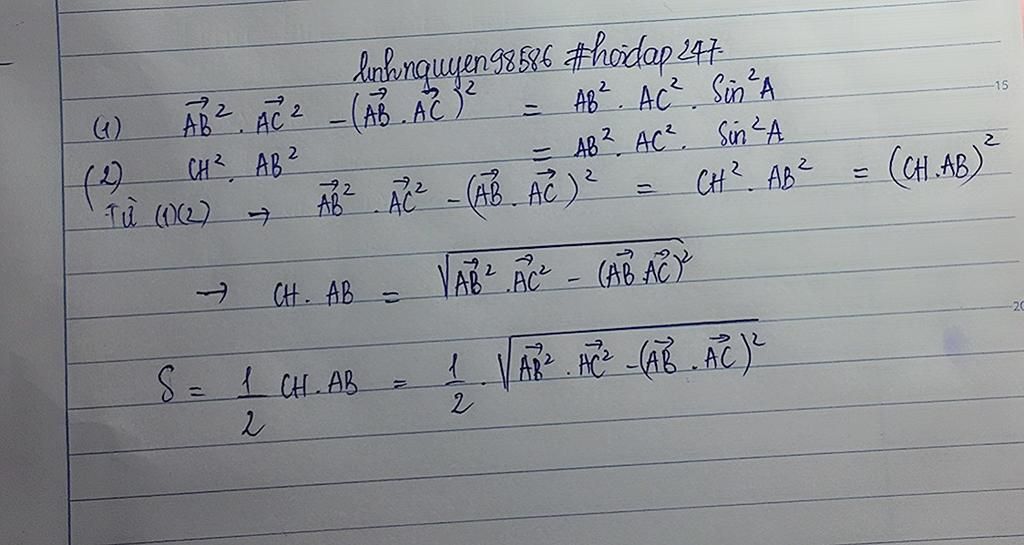 linhnguyen98586 #hoidap247
(1) $\overrightarrow{AB}^2 . \overrightarrow{AC}^2 - (\overrightarrow{AB} . \overrightarrow{AC})^2 = AB^2 . AC^2 . Sin^2A$
(2) $CH^2 . AB^2 = AB^2 . AC^2 . Sin^2A$
Từ (1)(2) → $\overrightarrow{AB}^2 . \overrightarrow{AC}^2 - (\overrightarrow{AB} . \overrightarrow{AC})^2 = CH^2 . AB^2 = (CH.AB)^2$
→ $CH . AB = \sqrt{\overrightarrow{AB}^2 . \overrightarrow{AC}^2 - (\overrightarrow{AB} . \overrightarrow{AC})^2}$
$S = \frac{1}{2} CH . AB = \frac{1}{2} . \sqrt{\overrightarrow{AB}^2 . \overrightarrow{AC}^2 - (\overrightarrow{AB} . \overrightarrow{AC})^2}$
15
20